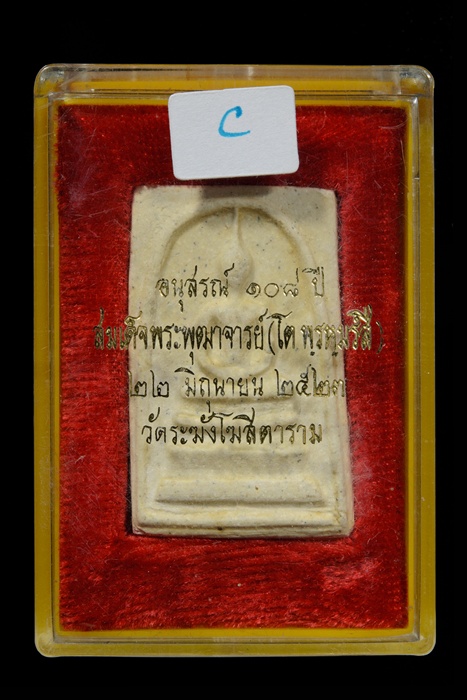 C
อนุสรณ์ ๑๐๘ ปี
สมเด็จพระพุฒาจารย์ (โต พฺรหฺมรํสี)
๒๒ มิถุนายน ๒๕๒๓
วัดระฆังโฆสิตาราม